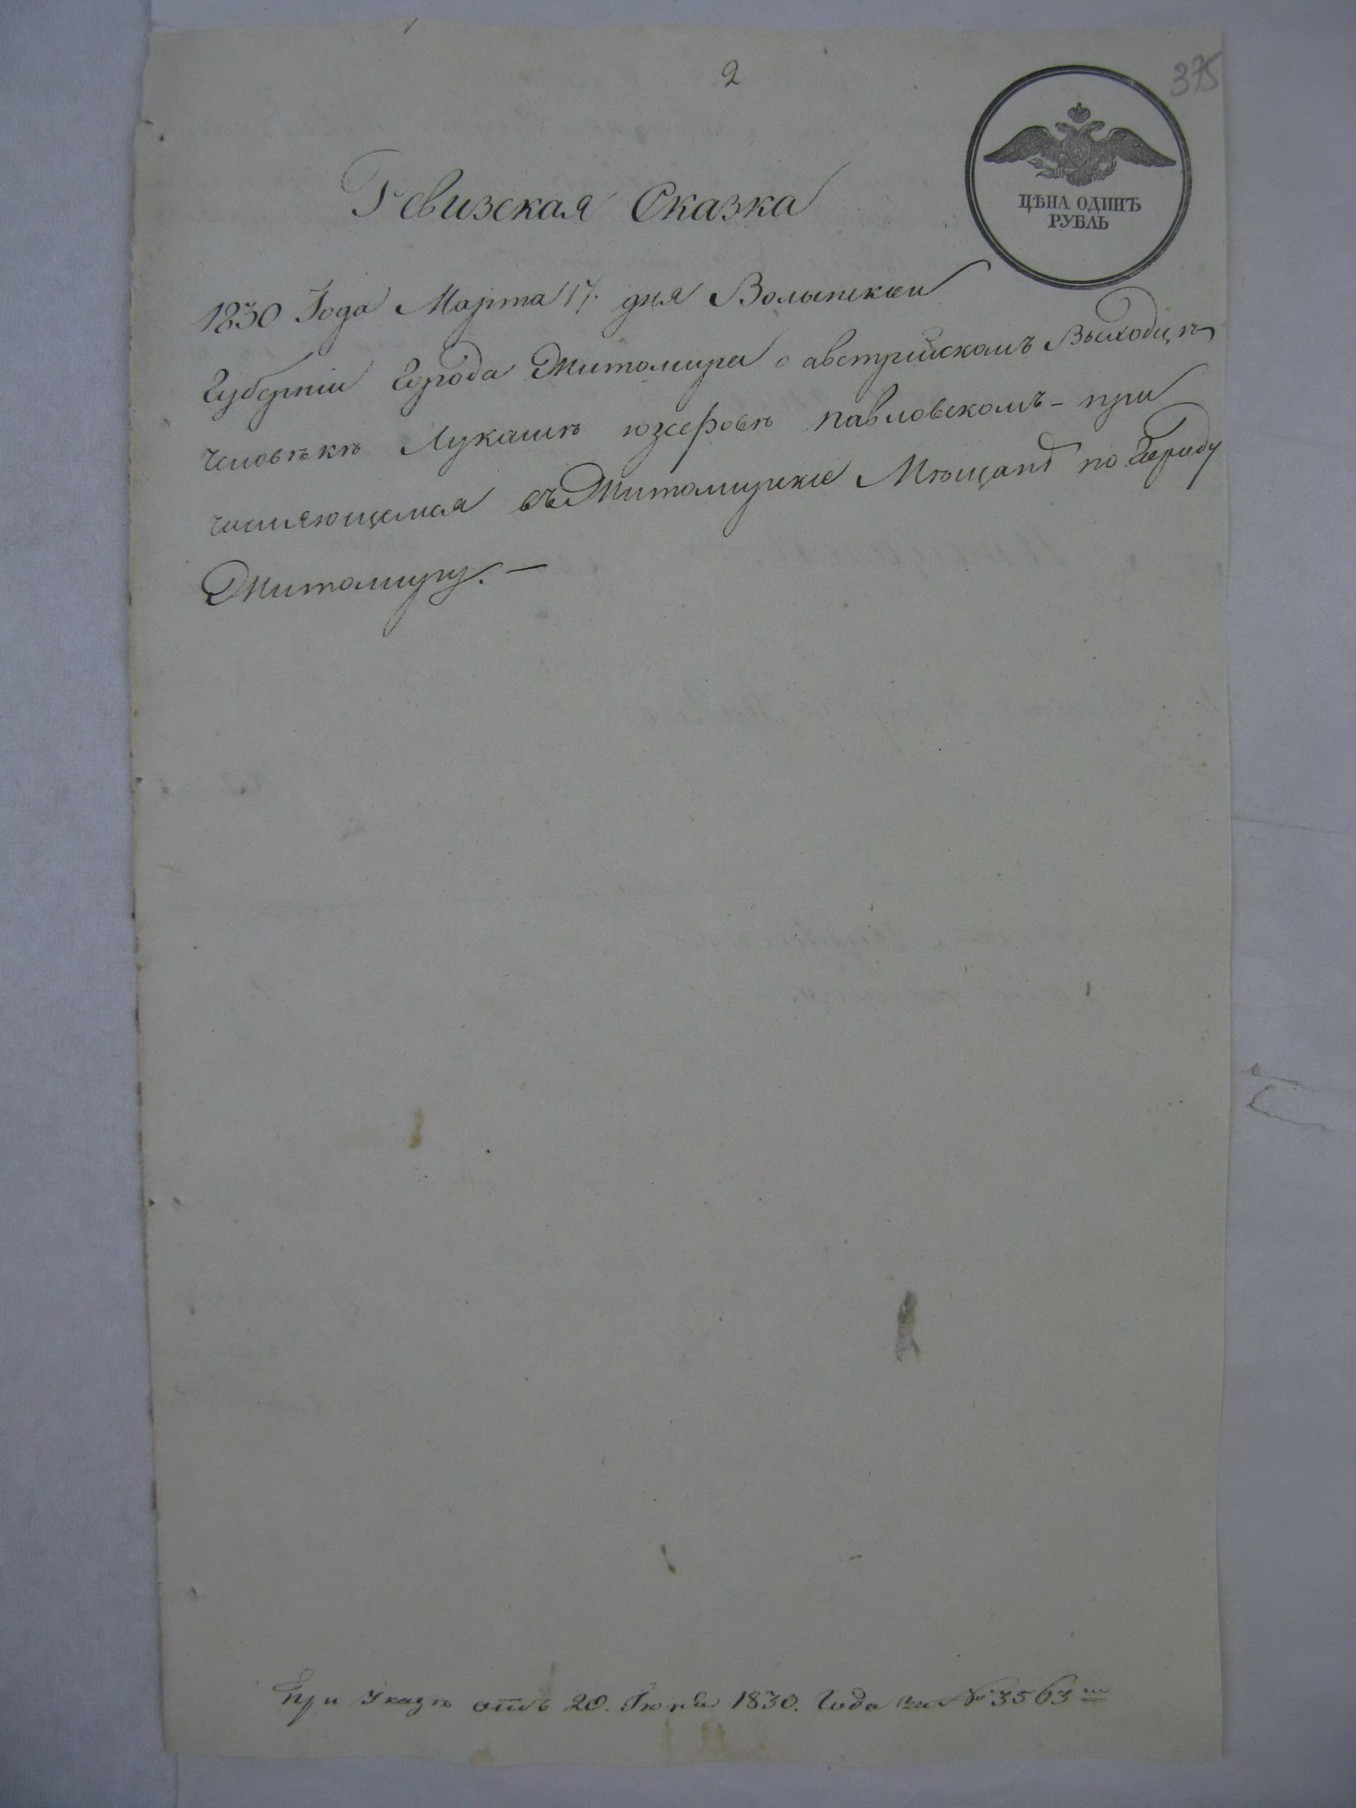 2
375
ЦѢНА ОДИНЪ
РУБЛЬ
Ревизская Сказка
1830 Года Марта 17. дня Волынскои
Губерніи Города Житомира о австрийскомъ Выходцѣ
человѣкѣ Лукашѣ юзефовѣ павловскомъ - при
числяющемся въ Житомирские Мѣщанѣ по Городу
Житомиру. —
При Указѣ отъ 20. Іюня 1830. Года за № 3563